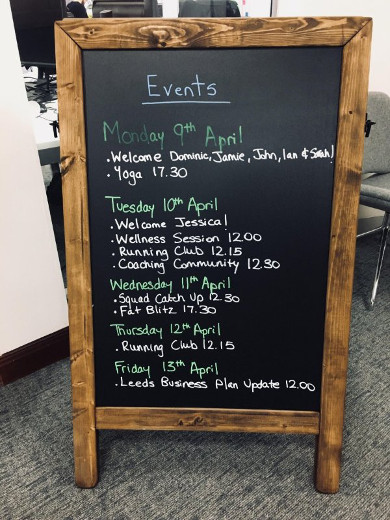 Events
Monday 9th April
• Welcome Dominic, Jamie, John, Ian & Sarah!
• Yoga 17.30
Tuesday 10th April
• Welcome Jessica!
• Wellness Session 12.00
• Running Club 12.15
• Coaching Community 12.30
Wednesday 11th April
• Squad Catch Up 12.30
• Fat Blitz 17.30
Thursday 12th April
• Running Club 12.15
Friday 13th April
• Leeds Business Plan Update 12.00